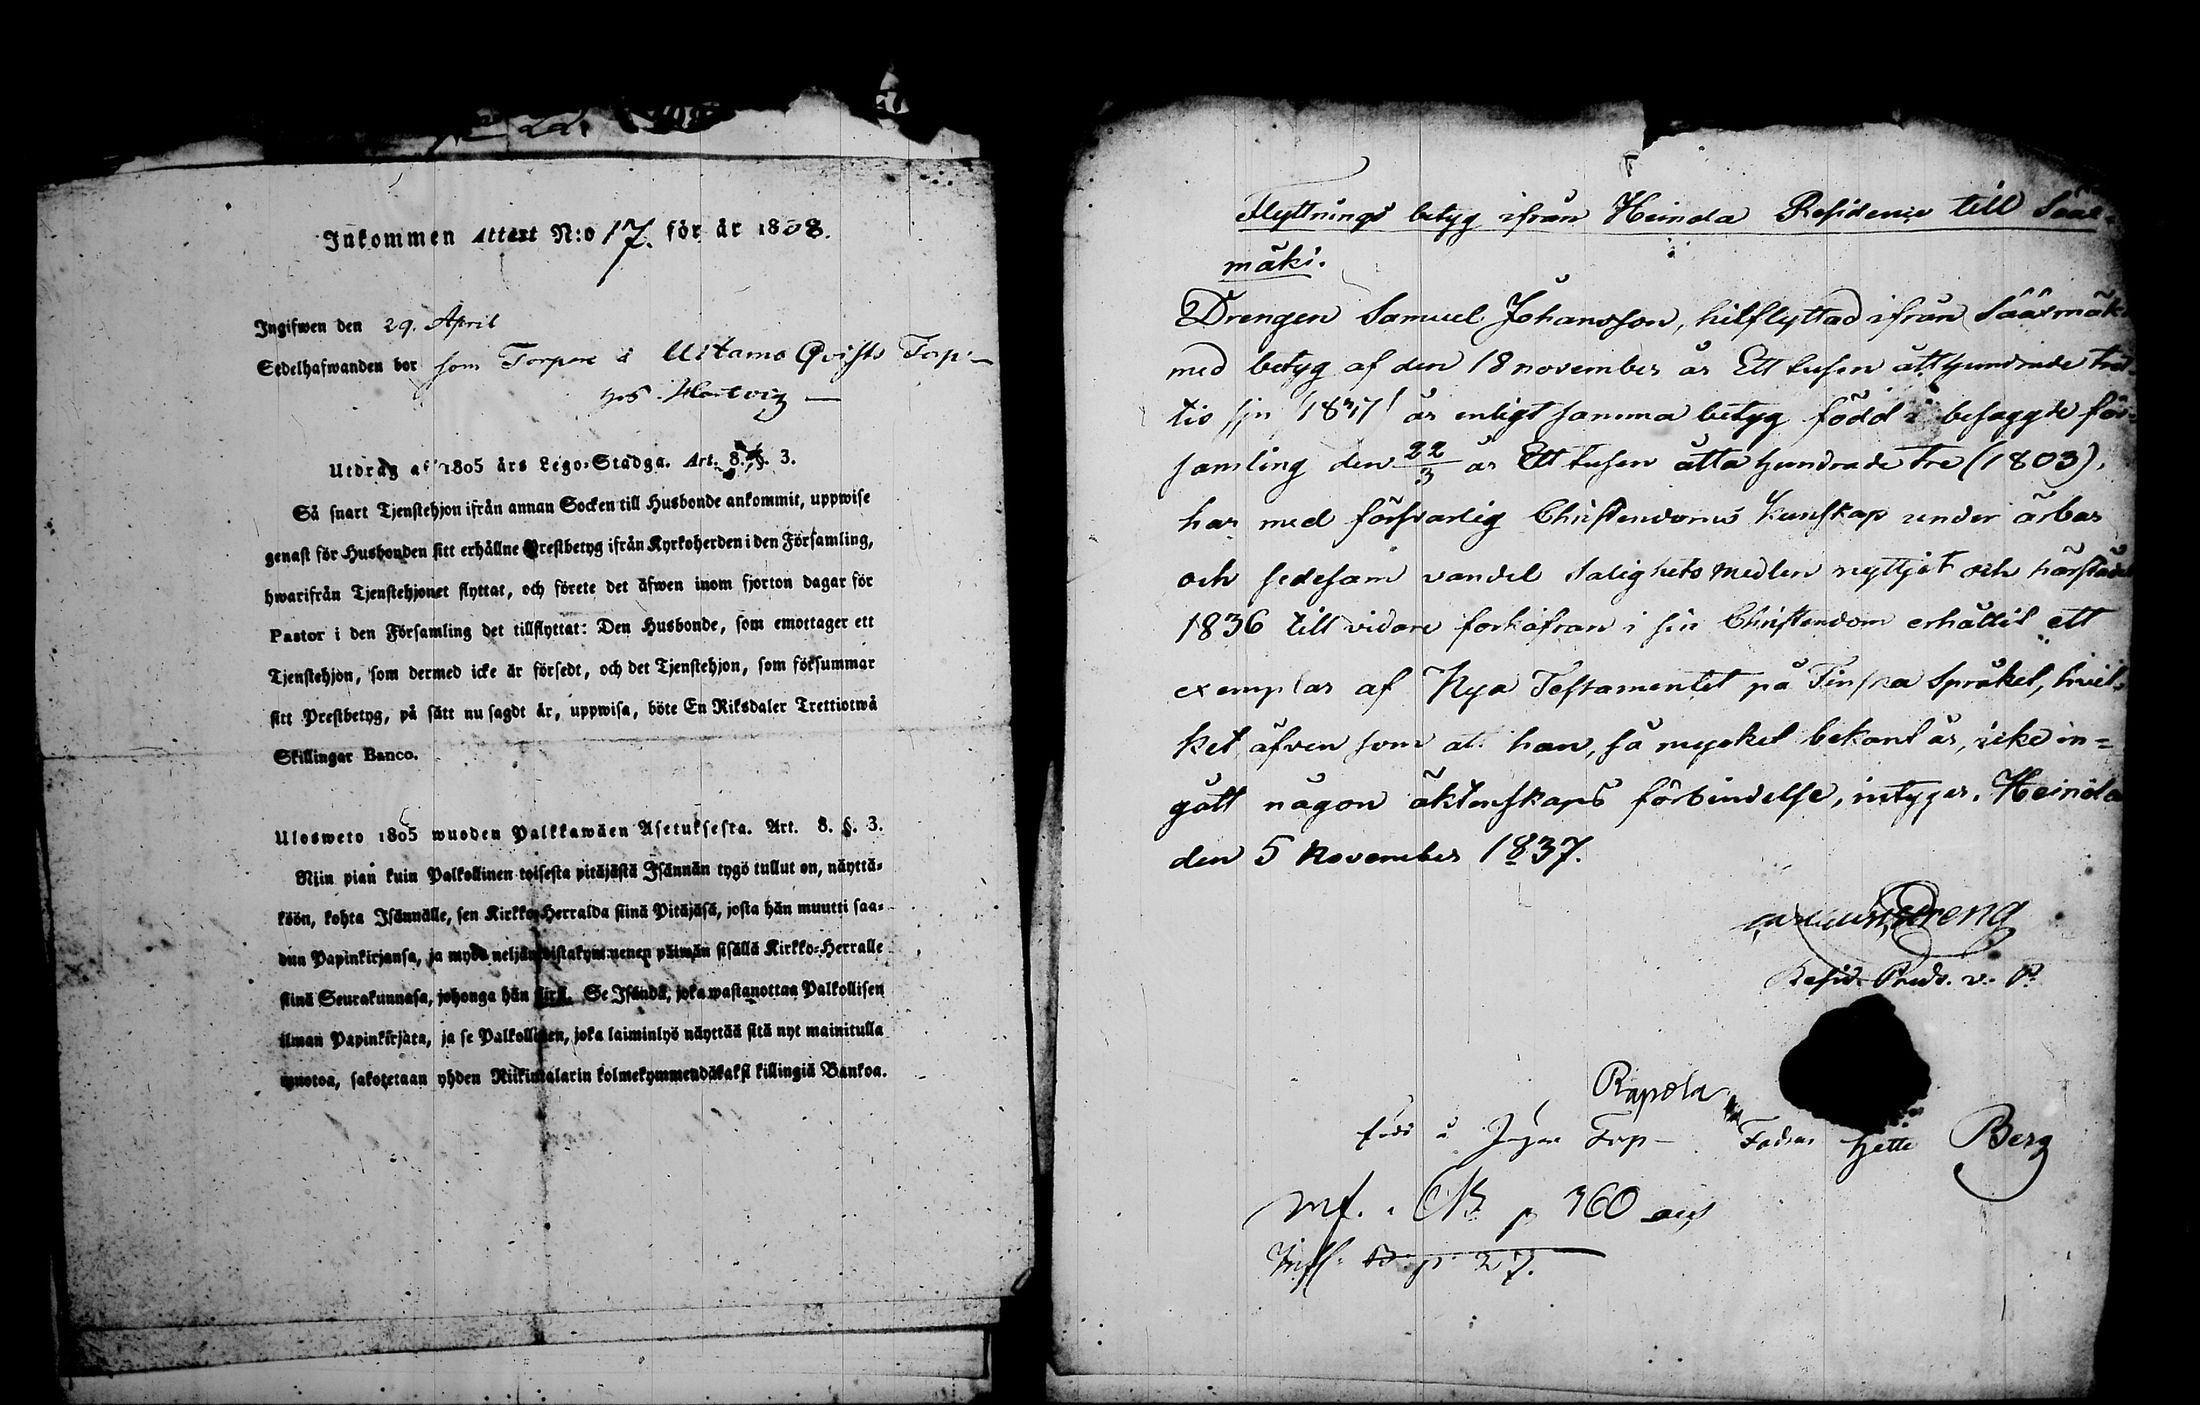 Inkommen Attest N:o 17. för år 1838.
Ingifwen den 29. April
Sedelhafwanden bor som Torpare å Uitamo Qvists Torp
hos Hartvig
Utdrag af 1805 års Lego-Stadga. Art. 8. §. 3.
Så snart Tjenstehjon ifrån annan Socken till Husbonde ankommit, uppwise
genast för Husbonden sitt erhållne Prestbetyg ifrån Kyrkoherden i den Församling,
hwarifrån Tjenstehjonet flyttat, och förete det äfwen inom fjorton dagar för
Pastor i den Församling det tillflyttat: Den Husbonde, som emottager ett
Tjenstehjon, som dermed icke är försedt, och det Tjenstehjon, som försummar
sitt Prestbetyg, på sätt nu sagdt är, uppwisa, böte En Riksdaler Trettiotwå
Skillingar Banco.
Ulosweto 1805 wuoden Palkkawäen Asetuksesta. Art. 8. §. 3.
Niin pian kuin Palkollinen toisesta pitäjästä Isännän tygö tullut on, näyttä-
köön, kohta Isännälle, sen Kirkko-Herralda siinä Pitäjäsä, josta hän muutti saa-
dun Papinkirjansa, ja myös neljäntoistakymmenen päiwän sisällä Kirkko-Herralle
siinä Seurakunnasa, johonga hän siirä. Se Isändä, joka wastanottaa Palkollisen
ilman Papinkirjata, ja se Palkollinen, joka laiminlyö näyttää sitä nyt mainitulla
muotoa, sakotetaan yhden Riikintalarin kolmekymmendäkaksi killingiä Bankoa.
Flyttnings betyg ifrån Heinola Residence till Sääx-
mäki.
Drengen Samuel Johansson, hitflyttad ifrån Sääxmäki
med betyg af den 18 november år Ett tusen åttahundrade tret-
tio sju /1837/ är enligt samma betyg född i besagde för-
samling den 22/3 år Ett tusen åtta hundrade tre (1803),
har med försvarlig Christendoms kunskap under ärbar
och sedesam vandel Salighets medlen nyttjat och härstädes
1836 till vidare förkofran i sin Christendom erhållit ett
exemplar af Nya Testamentet på Finska Språket, hvil-
ket äfven som att han, så mycket bekant är, icke in-
gått någon äktenskaps förbindelse, intygar. Heinola
den 5 November 1837.
Streng
Resid. Preds. v. P.
Rapola
född å Torp Fadren hette Berg
Inf. p 360
Infl. p. 27.